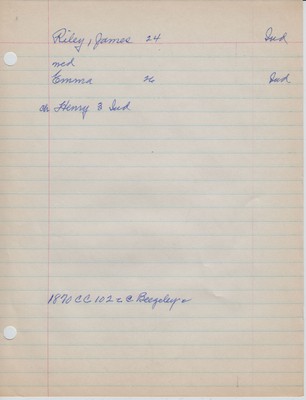 Riley, James 24 Ind
md
Emma 26 Ind
ch Henry 3 Ind
1870 CC 102